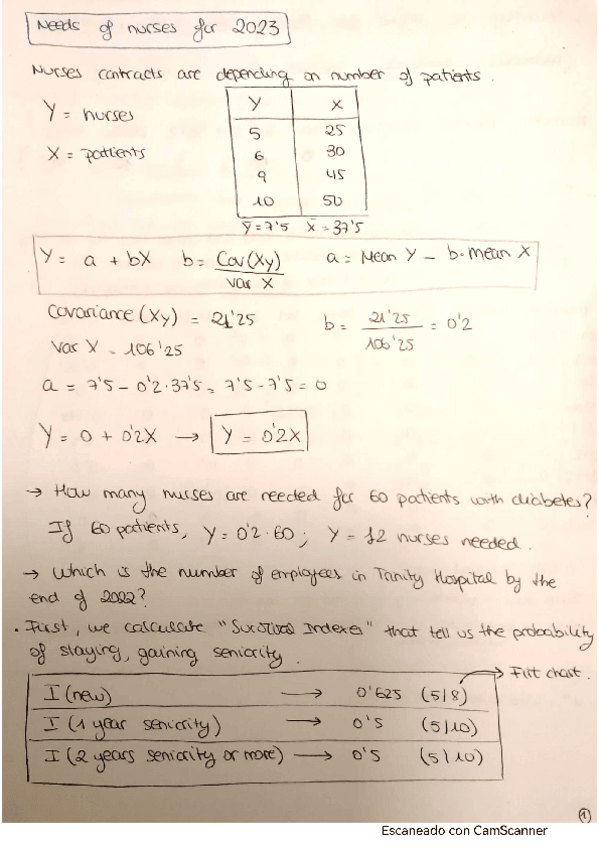 Needs of nurses for 2023
Nurses contracts are depending on number of patients.
Y = nurses
X = patients
Y X
5 25
6 30
9 45
10 50
Ȳ = 7'5 X̄ = 37'5
Y = a + bX b = Cov(Xy) / Var X a = Mean Y - b·mean X
Covariance (Xy) = 21'25 b = 21'25 / 106'25 = 0'2
Var X = 106'25
a = 7'5 - 0'2·37'5 = 7'5 - 7'5 = 0
Y = 0 + 0'2X → Y = 0'2X
→ How many nurses are needed for 60 patients with diabetes?
If 60 patients, Y = 0'2·60; Y = 12 nurses needed.
→ Which is the number of employees in Trinity Hospital by the
end of 2022?
• First, we calculate "Survival Indexes" that tell us the probability
of staying, gaining seniority.
→ First chart.
I (new) → 0'625 (5/8)
I (1 year seniority) → 0'5 (5/10)
I (2 years seniority or more) → 0'5 (5/10)
1
Escaneado con CamScanner